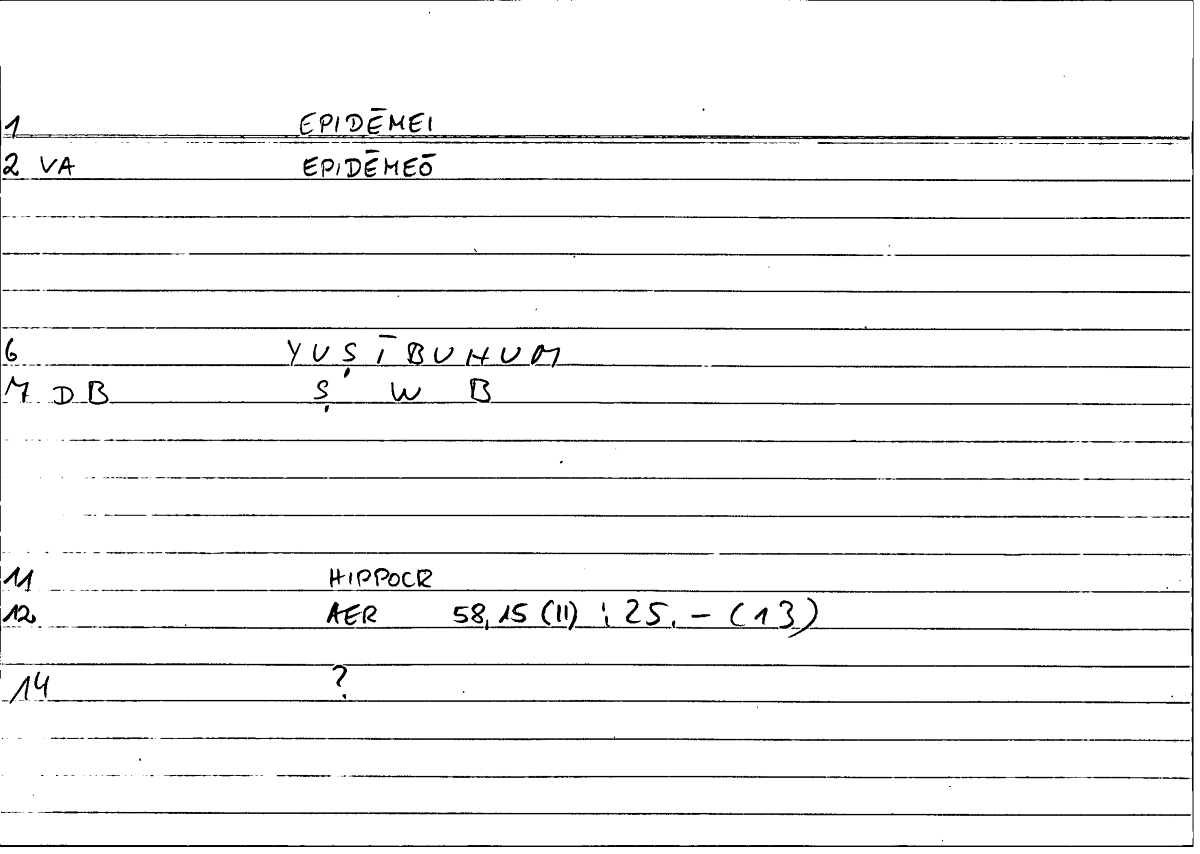 1 EPIDĒMEI
2 VA EPIDĒMEŌ
6 YUṢĪBUHUM
7 DB Ṣ W B
11 HIPPOCR
12 AER 58,15 (11) ; 25. – (13)
14 ?